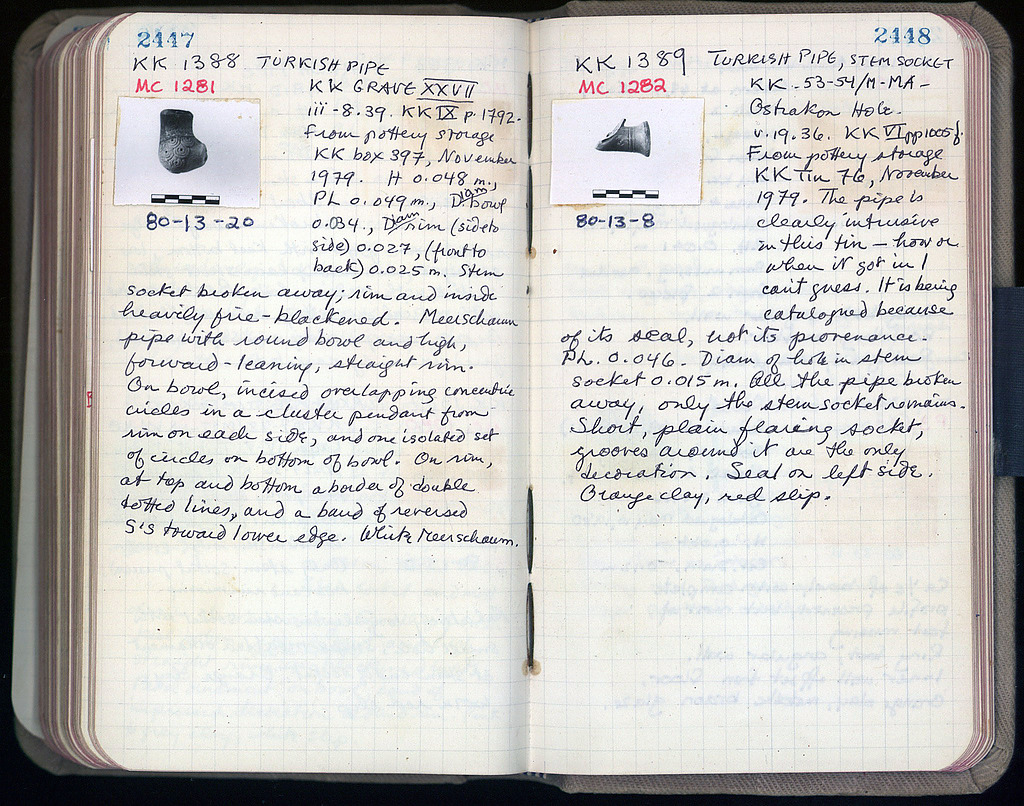 2447
KK 1388 TURKISH PIPE
MC 1281
KK GRAVE XXVII
iii-8.39. KK IX p. 1792.
From pottery storage
KK box 397, November
1979. H 0.048 m.,
PL 0.049 m., Diam. bowl
0.034., Diam rim (side to
side) 0.027, (front to
back) 0.025 m. Stem
80-13-20
socket broken away; rim and inside
heavily fire-blackened. Meerschaum
pipe with round bowl and high,
forward-leaning, straight rim.
On bowl, incised overlapping concentric
circles in a cluster pendant from
rim on each side, and one isolated set
of circles on bottom of bowl. On rim,
at top and bottom a border of double
dotted lines, and a band of reversed
S's toward lower edge. White Meerschaum.
2448
KK 1389 TURKISH PIPE, STEM SOCKET
MC 1282
KK - 53-54/M-MA -
Ostrakon Hole.
v.19.36. KK VI pp 1005 f.
From pottery storage
KK Tin 76, November
1979. The pipe is
clearly intrusive
in this tin — how or
when it got in I
can't guess. It is being
catalogued because
80-13-8
of its seal, not its provenance.
PL. 0.046. Diam of hole in stem
socket 0.015 m. All the pipe broken
away, only the stem socket remains.
Short, plain flaring socket,
grooves around it are the only
decoration. Seal on left side.
Orange clay, red slip.